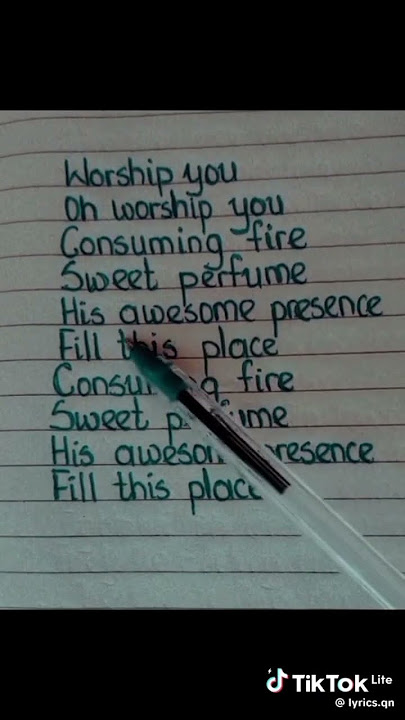 Worship you
Oh worship you
Consuming fire
Sweet perfume
His awesome presence
Fill this place
Consuming fire
Sweet perfume
His awesome presence
Fill this place
TikTok Lite
@lyrics.qn